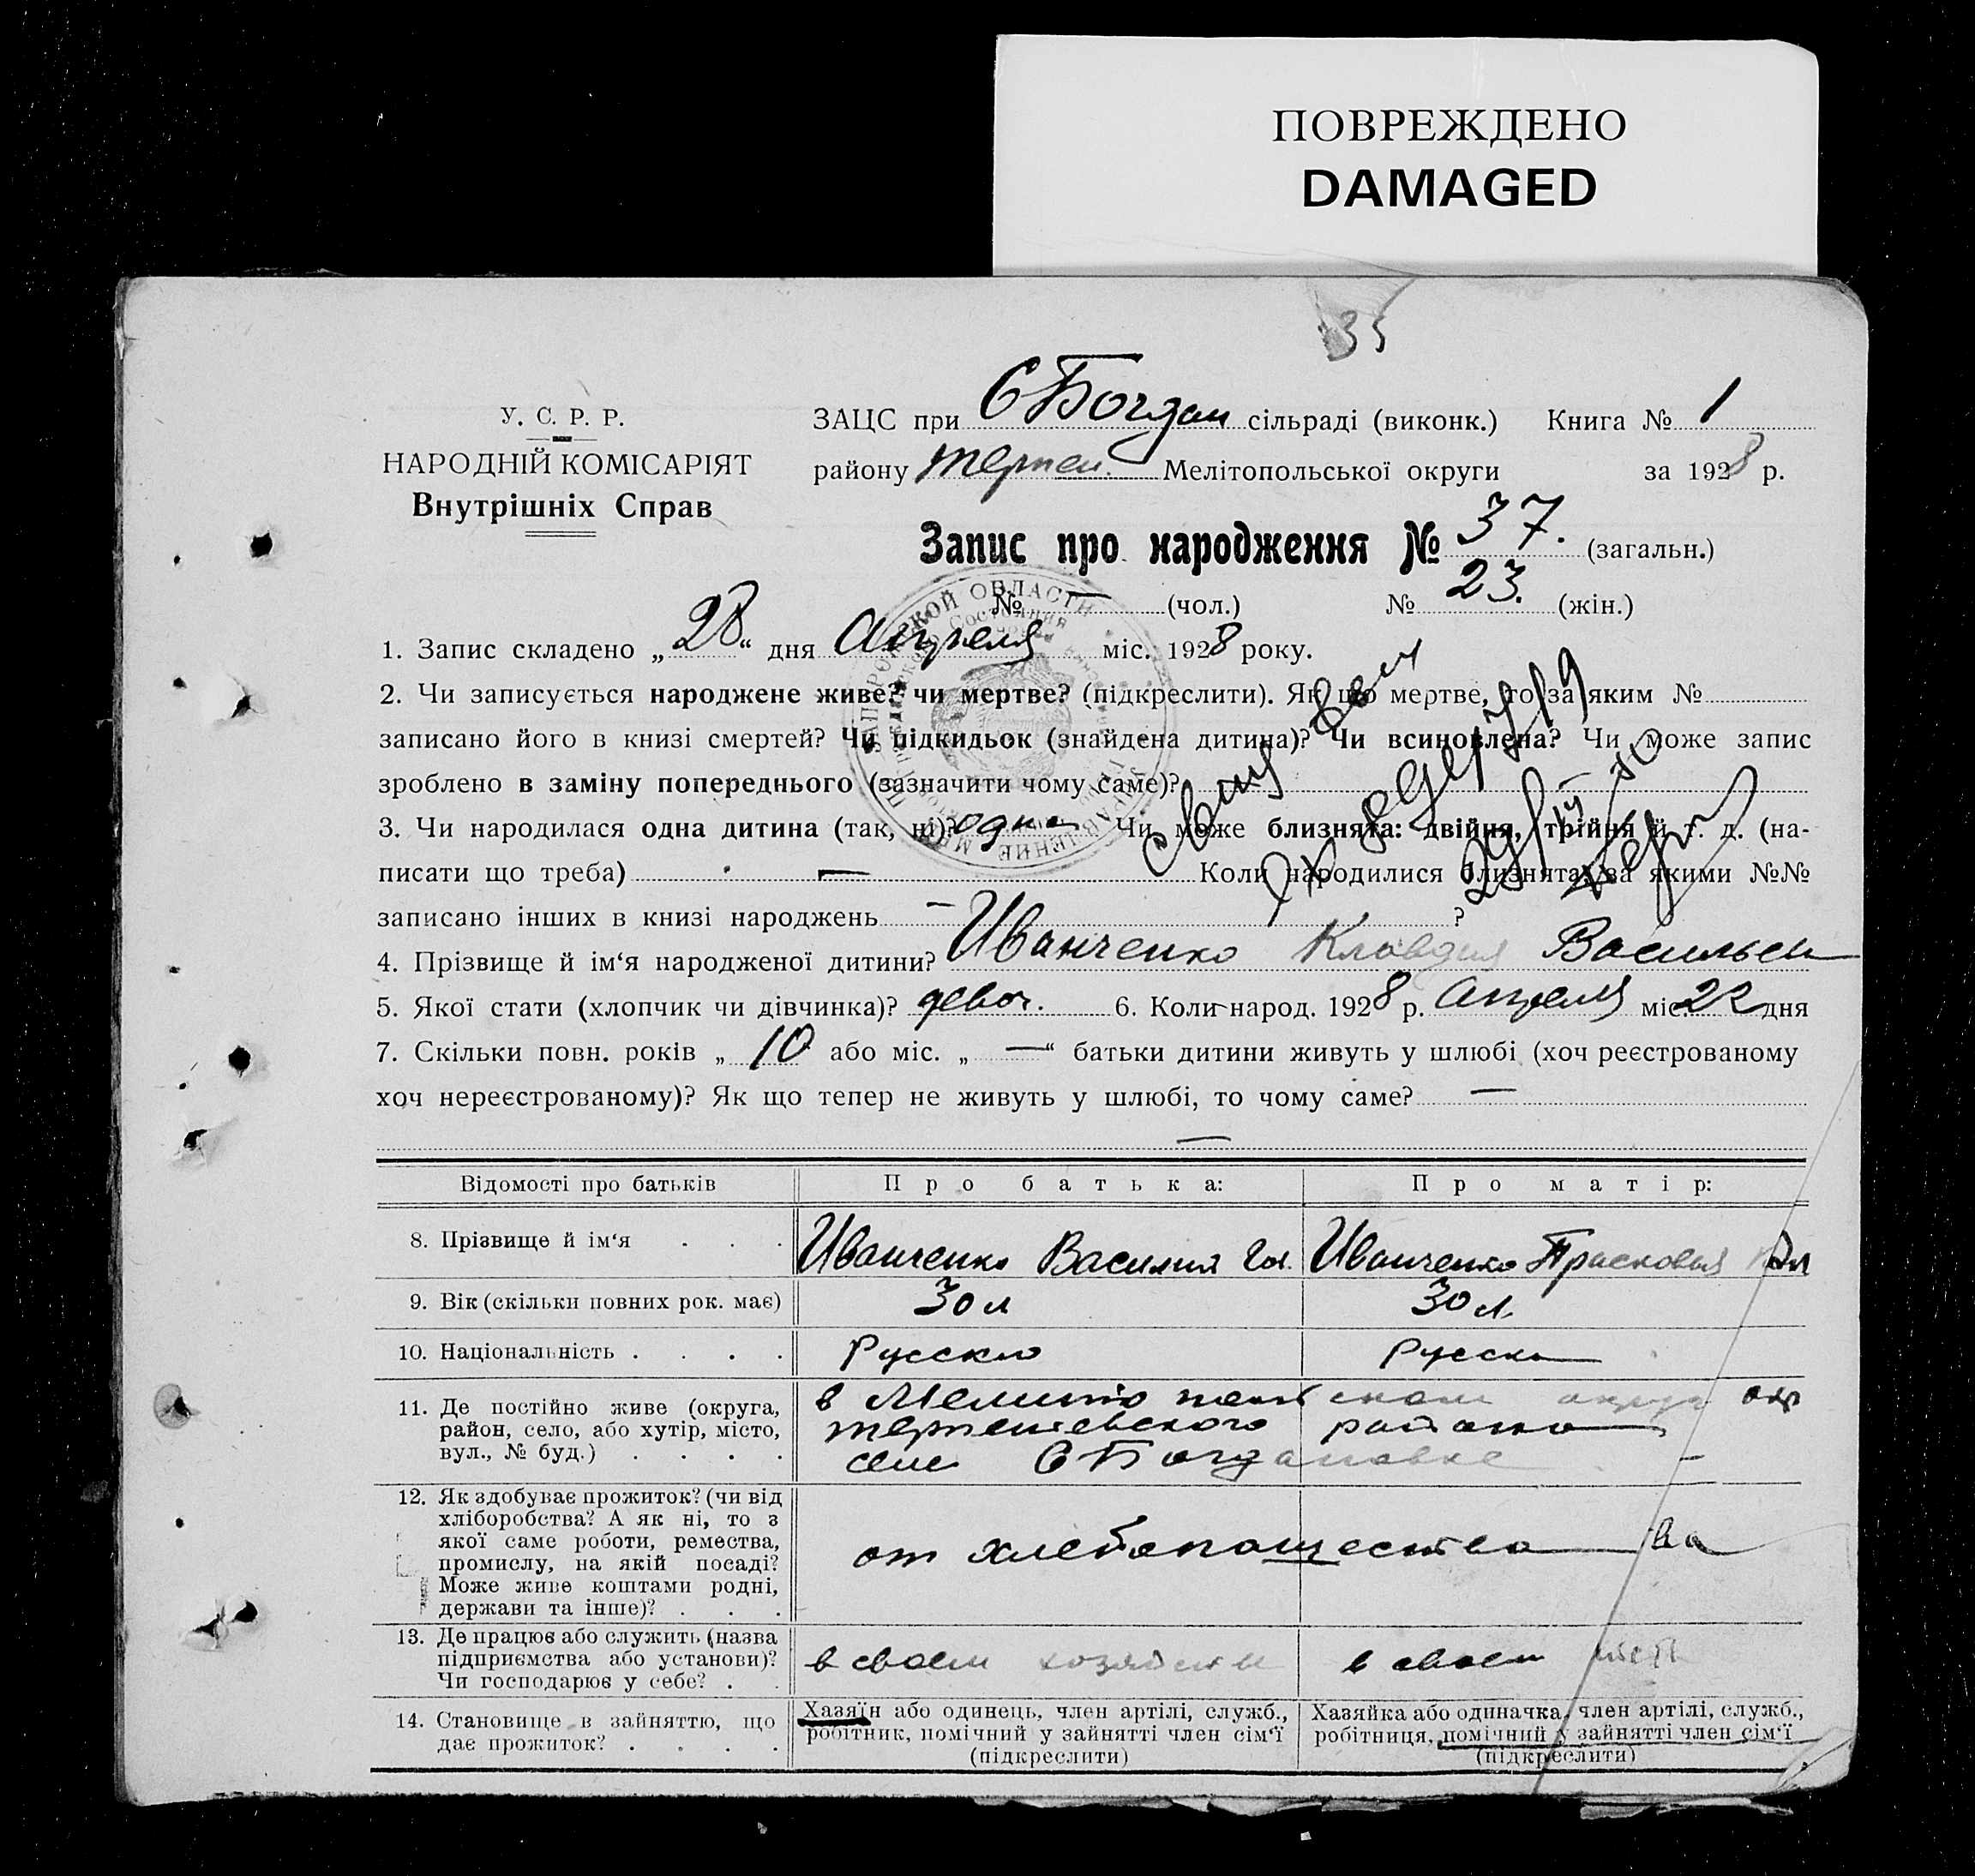 ПОВРЕЖДЕНО
DAMAGED
35
У. С. Р. Р.
НАРОДНІЙ КОМІСАРІЯТ
Внутрішніх Справ
ЗАЦС при СБогдан сільраді (виконк.) Книга № 1
району Терпен. Мелітопольської округи за 1928 р.
Запис про народження № 37. (загальн.)
№ — (чол.) № 23. (жін.)
1. Запис складено „28“ дня Апреля міс. 1928 року.
2. Чи записується народжене живе? чи мертве? (підкреслити). Як що мертве, то за яким №
записано його в книзі смертей? Чи підкидьок (знайдена дитина)? Чи всиновлена? Чи може запис
зроблено в заміну попереднього (зазначити чому саме)?
3. Чи народилася одна дитина (так, ні)? одна Чи може близнята: двійня, трійня й т. д. (на-
писати що треба) — Коли народилися близнята, за якими №№
записано інших в книзі народжень — ?
4. Прізвище й ім‘я народженої дитини? Иванченко Клавдия Васильевн
5. Якої стати (хлопчик чи дівчинка)? девоч. 6. Коли народ. 1928 р. Апреля міс. 22 дня
7. Скільки повн. років „10 або міс. „—“ батьки дитини живуть у шлюбі (хоч реєстрованому
хоч нереєстрованому)? Як що тепер не живуть у шлюбі, то чому саме? —
—
Відомості про батьків Про батька: Про матір:
8. Прізвище й ім‘я . . . Иванченко Василий Иванченко Прасковья
9. Вік (скільки повних рок. має) 30 л 30 л.
10. Національність . . . . Русский Русска
11. Де постійно живе (округа,
район, село, або хутір, місто,
вул., № буд.) . . . .
в Мелитопольском округ окр
терпеневского района
селе СБогдановке —
12. Як здобуває прожиток? (чи від
хліборобства? А як ні, то з
якої саме роботи, ремества,
промислу, на якій посаді?
Може живе коштами родні,
держави та інше)? . . .
от хлебопашества ва
13. Де працює або служить (назва
підприємства або установи)?
Чи господарює у себе? . .
в своем хозяйстве в своем
14. Становище в зайняттю, що
дає прожиток? . . . .
Хазяїн або одинець, член артілі, служб.,
робітник, помічний у зайнятті член сім‘ї
(підкреслити)
Хазяйка або одиначка, член артілі, служб.,
робітниця, помічний у зайнятті член сім‘ї
(підкреслити)